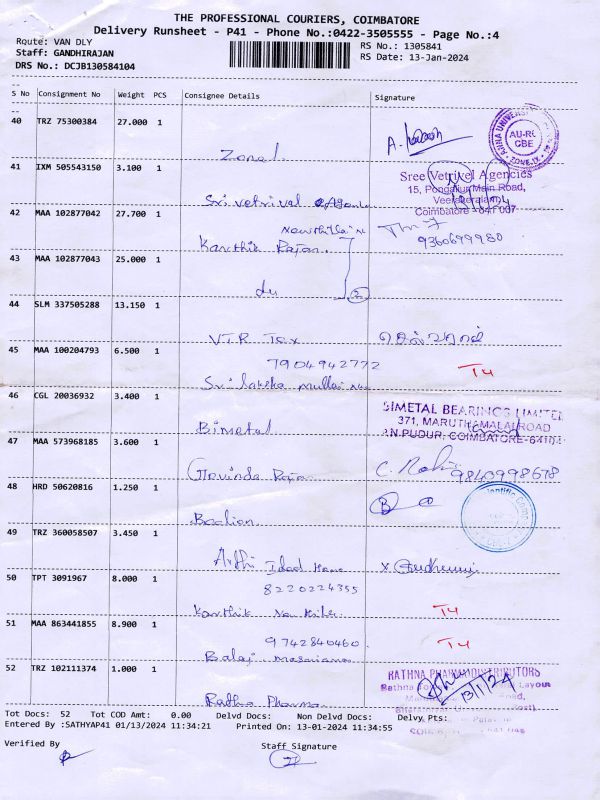 THE PROFESSIONAL COURIERS, COIMBATORE
Delivery Runsheet - P41 - Phone No.:0422-3505555 - Page No.:4
Route: VAN DLY
RS No.: 1305841
Staff: GANDHIRAJAN
RS Date: 13-Jan-2024
DRS No.: DCJB130584104
S No Consignment No Weight PCS Consignee Details Signature
40 TRZ 75300384 27.000 1
AU-RC
CBE
Zonal
41 IXM 505543150 3.100 1
Sree Vetrivel Agencies
15, Pongaliur Main Road,
Veerakeralam,
Coimbatore - 641 007
Sri vetrival
42 MAA 102877042 27.700 1
9360699980
Karthik Rajan
43 MAA 102877043 25.000 1
du
2
44 SLM 337505288 13.150 1
V.T.R Tax
45 MAA 100204793 6.500 1
7904942772
T4
46 CGL 20036932 3.400 1
BIMETAL BEARINGS LIMITED
371, MARUTHAMALAI ROAD
P.N.PUDUR, COIMBATORE-641041
Bimetal
47 MAA 573968185 3.600 1
9840998678
Govinda Rajan
48 HRD 50620816 1.250 1
49 TRZ 360058507 3.450 1
50 TPT 3091967 8.000 1
8220224355
T4
51 MAA 863441855 8.900 1
9742840460
T4
Balaji
52 TRZ 102111374 1.000 1
RATHNA PHARMA DISTRIBUTORS
13/1/24
Rathna Pharma
Tot Docs: 52 Tot COD Amt: 0.00 Delvd Docs: Non Delvd Docs: Delvy Pts:
Entered By :SATHYAP41 01/13/2024 11:34:21 Printed On: 13-01-2024 11:34:55
Verified By Staff Signature